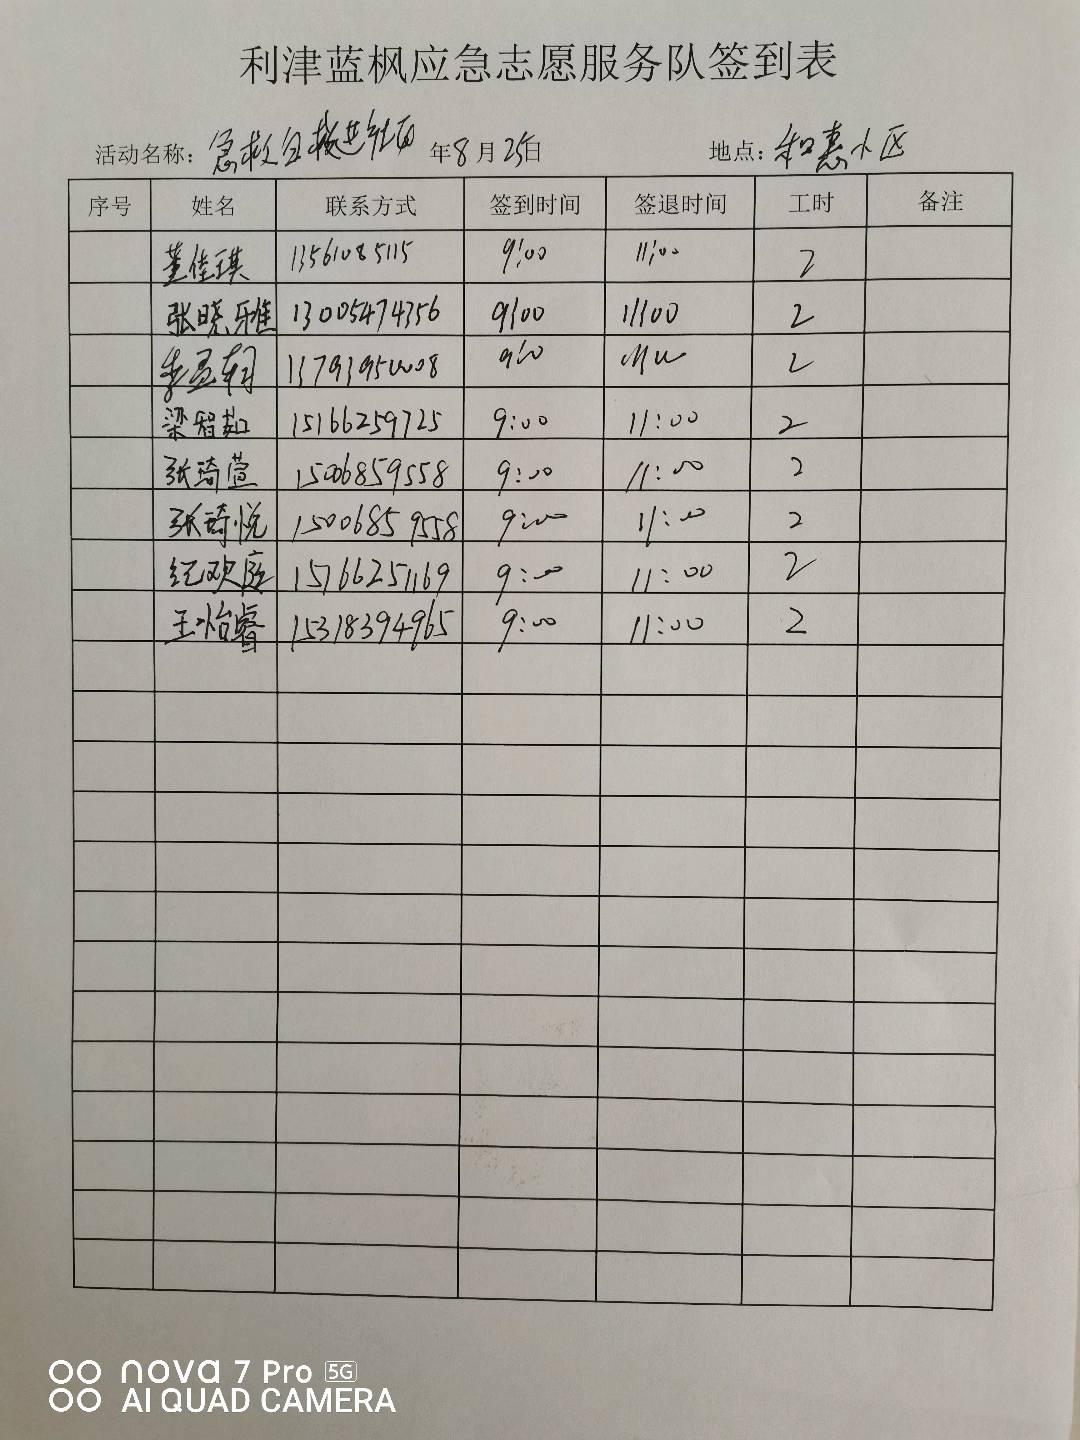 利津蓝枫应急志愿服务队签到表
活动名称：急救自救进社区 年8月25日 地点：和惠小区
序号 姓名 联系方式 签到时间 签退时间 工时 备注
董佳琪 13561085115 9:00 11:00 2
张晓雅 13005474356 9:00 11:00 2
李孟轲 9:00 11:00 2
梁智茹 15166259725 9:00 11:00 2
张琦萱 15006859558 9:00 11:00 2
张琦悦 15006859558 9:00 11:00 2
纪欢庭 15166251169 9:00 11:00 2
王怡睿 15318394965 9:00 11:00 2
nova 7 Pro 5G
AI QUAD CAMERA